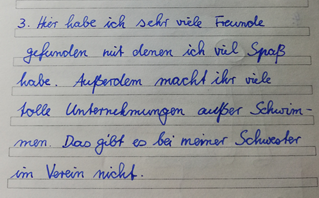 3. Hier habe ich sehr viele Freunde
gefunden mit denen ich vil Spaß
habe. Außerdem macht ihr viele
tolle Unternehmungen außer Schwim-
men. Das gibt es bei meiner Schwester
im Verein nicht.